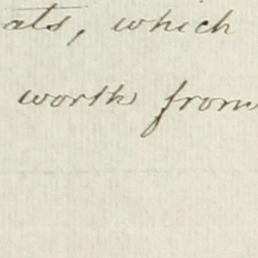 ats, which
worth from